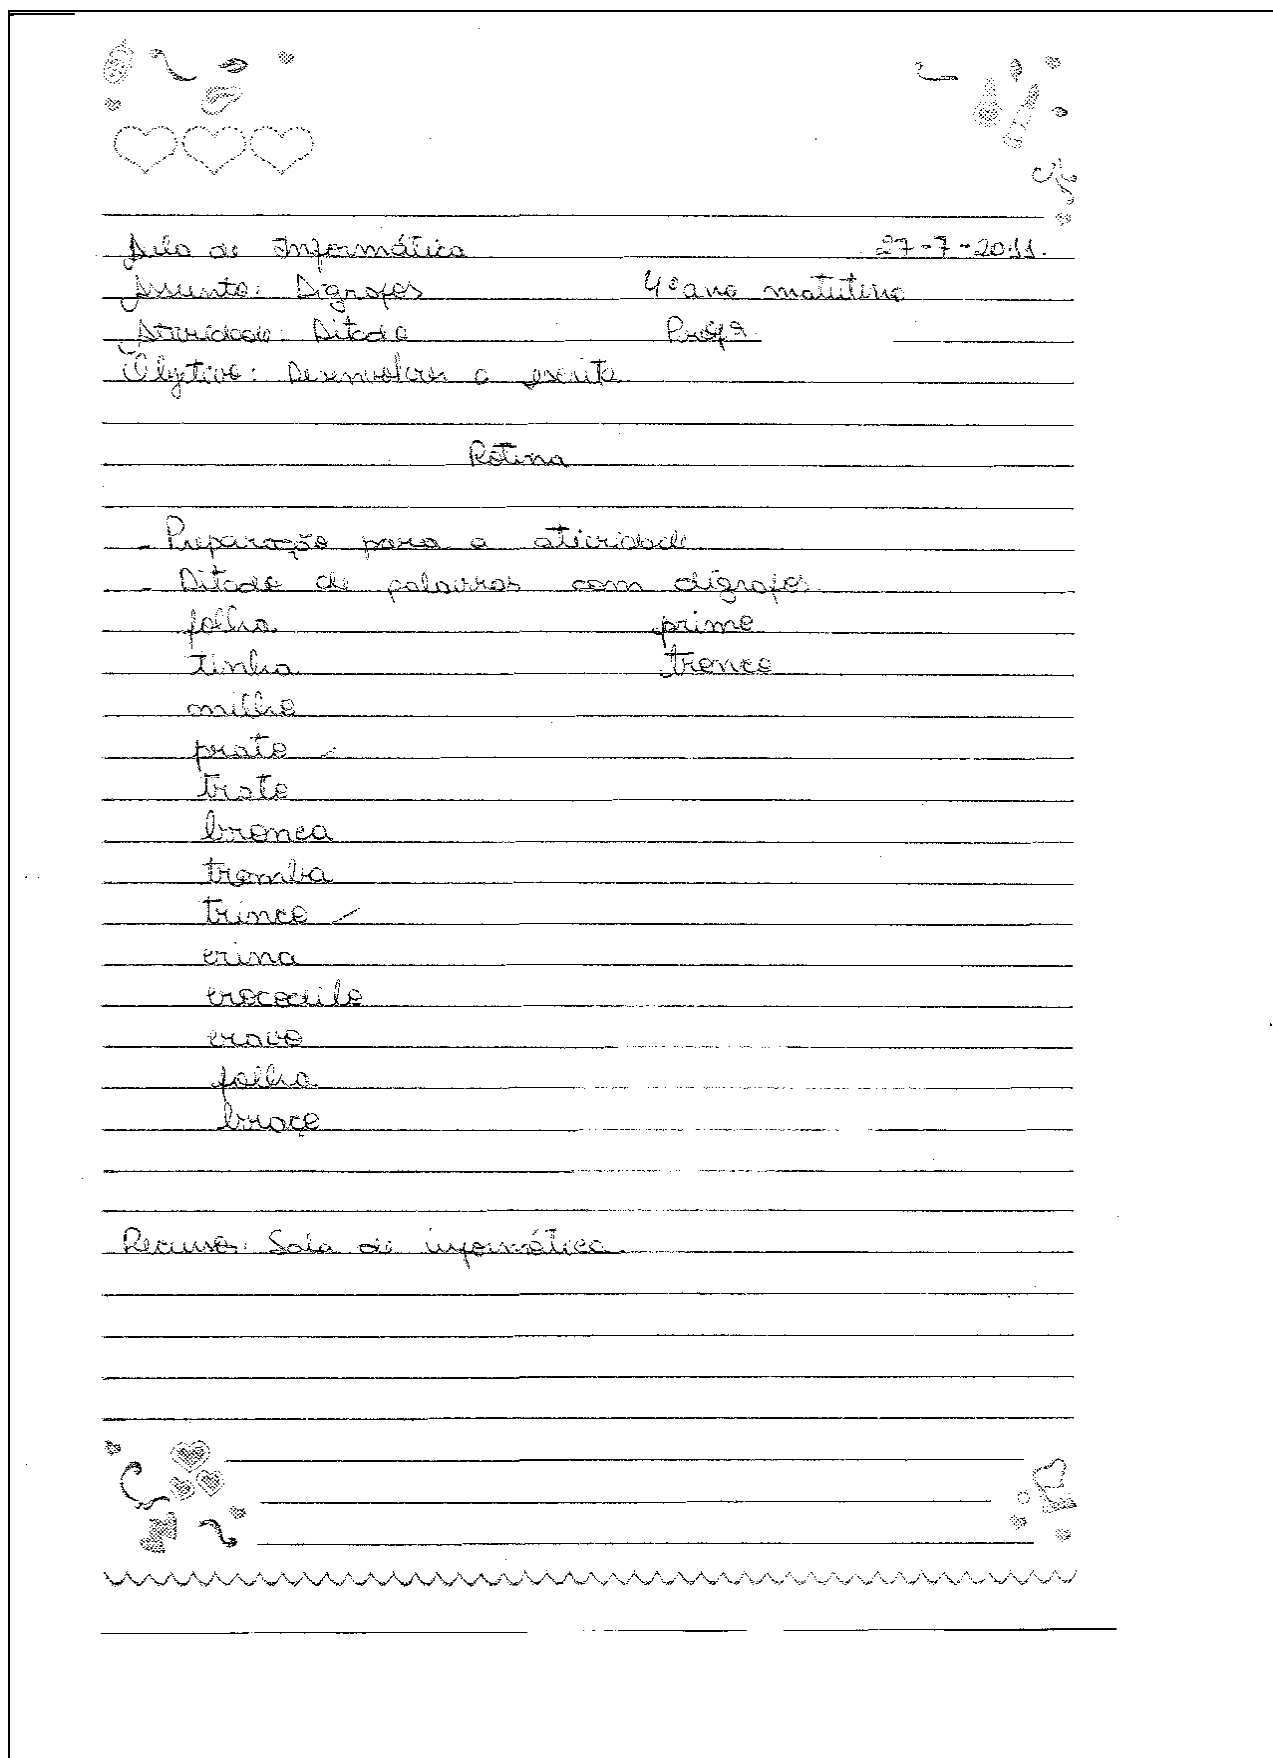 Aula de Informática 27-7-2011.
Assunto: Dígrafos 4º ano matutino
Atividade: Ditado Profª
Objetivo: Desenvolver a escrita.
Rotina
- Preparação para a atividade
- Ditado de palavras com dígrafos.
folha primo
tinha tronco
milho
prato
trato
bronca
tromba
trinco
crina
crocodilo
cravo
falha
braço
Recurso: Sala de informática.